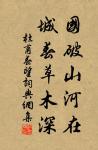 國破山河在
城春草木深
杜甫春望詞典網集